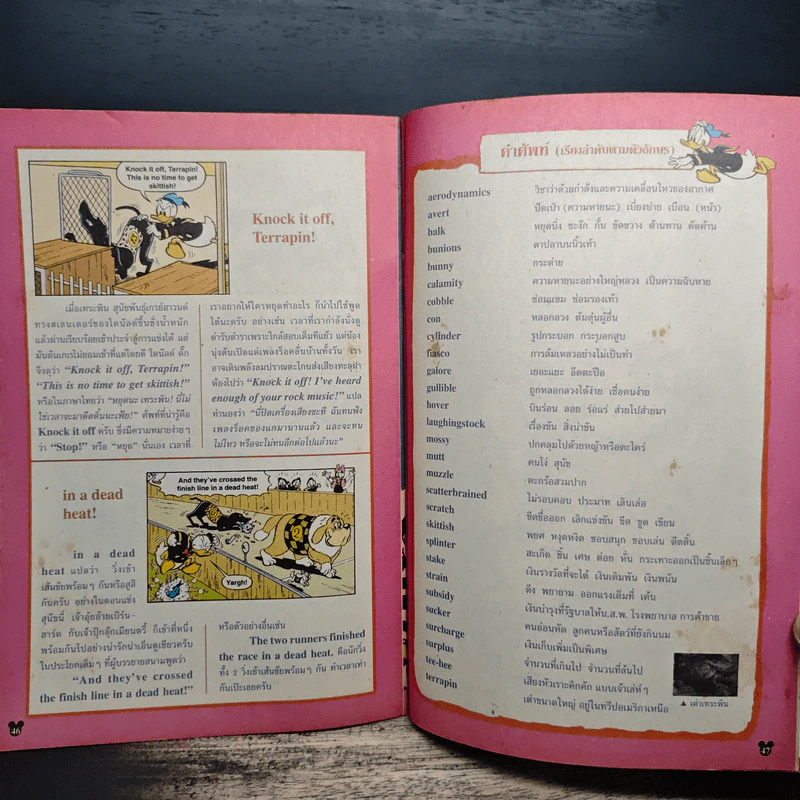 Knock it off, Terrapin!
This is no time to get
skittish!
Knock it off,
Terrapin!
เมื่อเทระพิน สุนัขพันธุ์เกรย์ฮาวนด์
ทรงสเลนเดอร์ของโดนัลด์ขึ้นชั่งน้ำหนัก
แล้วผ่านเรียบร้อยเข้าประจำสู่การแข่งได้ แต่
มันดันเกเรไม่ยอมเข้าที่แต่โดยดี โดนัลด์ ดั๊ก
จึงดุว่า "Knock it off, Terrapin!"
"This is no time to get skittish!"
หรือในภาษาไทยว่า "หยุดนะ เทระพิน! นี่ไม่
ใช่เวลาจะมาดีดดิ้นนะเฟ้ย!" ศัพท์ที่น่ารู้คือ
Knock it off ครับ ซึ่งมีความหมายง่ายๆ
ว่า "Stop!" หรือ "หยุด" นั่นเอง เวลาที่
เราอยากให้ใครหยุดทำอะไร ก็นำไปใช้พูด
ได้นะครับ อย่างเช่น เวลาที่เรากำลังนั่งดู
ตำรับตำราเพราะใกล้สอบเต็มทีแล้ว แต่น้อง
นุ่งดันเปิดแต่เพลงร็อคลั่นบ้านทั้งวัน เรา
อาจเดินพลังลมปราณตะโกนส่งเสียงทะลุฝา
ห้องไปว่า "Knock it off! I've heard
enough of your rock music!" แปล
ทำนองว่า "นี่ปิดเครื่องเสียงซะที ฉันทนฟัง
เพลงร็อคของแกมานานแล้ว และจะทน
ไม่ไหว หรือจะไม่ทนอีกต่อไปแล้วนะ"
in a dead
heat!
And they've crossed the
finish line in a dead heat!
Yargh!
in a dead
heat แปลว่า วิ่งเข้า
เส้นชัยพร้อมๆ กันหรือสูสี
กันครับ อย่างในตอนแข่ง
สุนัขนี่ เจ้าอุ้ยอ้ายเบิร์น-
ฮาร์ด กับเจ้าปุ๊กลุ๊กเมียนดรี้ ก็เข้าที่หนึ่ง
พร้อมกันไปอย่างน่ารักน่าเอ็นดูเชียวครับ
ในประโยคเด็มๆ ที่ผู้บรรยายสนามพูดว่า
"And they've crossed
the finish line in a dead heat!"
หรือตัวอย่างอื่นเช่น
The two runners finished
the race in a dead heat. คือนักวิ่ง
ทั้ง 2 วิ่งเข้าเส้นชัยพร้อมๆ กัน ทำเวลาเท่า
กันเป๊ะเลยครับ
46
คำศัพท์ (เรียงลำดับตามตัวอักษร)
aerodynamics วิชาว่าด้วยกำลังและความเคลื่อนไหวของอากาศ
avert ปัดเป่า (ความหายนะ) เบี่ยงบ่าย เบือน (หน้า)
balk หยุดนิ่ง ชะงัก กั้น ขัดขวาง ต้านทาน คัดค้าน
bunions ตาปลาบนนิ้วเท้า
bunny กระต่าย
calamity ความหายนะอย่างใหญ่หลวง เป็นความฉิบหาย
cobble ซ่อมแซม ซ่อมรองเท้า
con หลอกลวง ต้มตุ๋นผู้อื่น
cylinder รูปกระบอก กระบอกสูบ
fiasco การล้มเหลวอย่างไม่เป็นท่า
galore เยอะแยะ อึดตะปือ
gullible ถูกหลอกลวงได้ง่าย เชื่อคนง่าย
hover บินร่อน ลอย ร่อแร่ ส่ายไปส่ายมา
laughingstock เรื่องขัน สิ่งน่าขัน
mossy ปกคลุมไปด้วยหญ้าหรือตะไคร่
mutt คนโง่ สุนัข
muzzle ตะกร้อสวมปาก
scatterbrained ไม่รอบคอบ ประมาท เลินเล่อ
scratch ขีดชื่อออก เลิกแข่งขัน ขีด ขูด เขียน
skittish พยศ หงุดหงิด ชอบสนุก ชอบเล่น ดีดดิ้น
splinter สะเก็ด ชิ้น เศษ ต่อย หั่น กระเทาะออกเป็นชิ้นเล็กๆ
stake เงินรางวัลที่จะได้ เงินเดิมพัน เงินพนัน
strain ดึง พยายาม ออกแรงเต็มที่ เค้น
subsidy เงินบำรุงที่รัฐบาลให้น.ส.พ. โรงพยาบาล การค้าขาย
sucker คนอ่อนหัด ลูกคนหรือสัตว์ที่ยังกินนม
surcharge เงินเก็บเพิ่มเป็นพิเศษ
surplus จำนวนที่เกินไป จำนวนที่ล้นไป
tee-hee เสียงหัวเราะคิกคัก แบบเจ้าเล่ห์ๆ
terrapin เต่าขนาดใหญ่ อยู่ในทวีปอเมริกาเหนือ
▲ เต่าเทระพิน
47